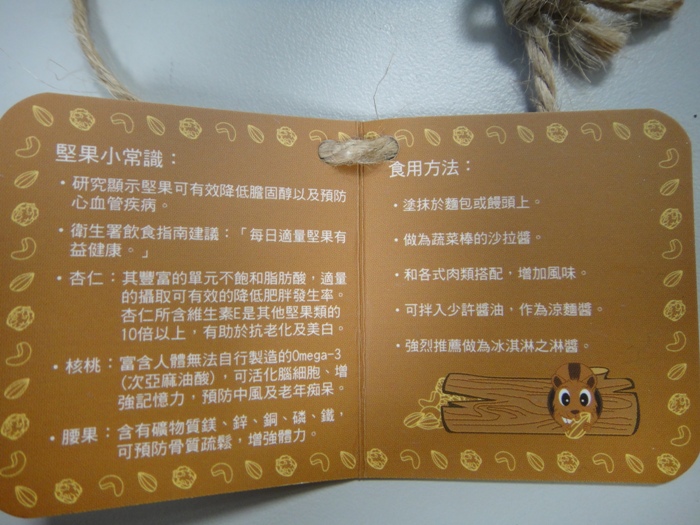 堅果小常識：
・研究顯示堅果可有效降低膽固醇以及預防
心血管疾病。
・衛生署飲食指南建議：「每日適量堅果有
益健康。」
・杏仁：其豐富的單元不飽和脂肪酸，適量
的攝取可有效的降低肥胖發生率。
杏仁所含維生素E是其他堅果類的
10倍以上，有助於抗老化及美白。
・核桃：富含人體無法自行製造的Omega-3
(次亞麻油酸)，可活化腦細胞、增
強記憶力，預防中風及老年痴呆。
・腰果：含有礦物質鎂、鋅、銅、磷、鐵，
可預防骨質疏鬆，增強體力。
食用方法：
・塗抹於麵包或饅頭上。
・做為蔬菜棒的沙拉醬。
・和各式肉類搭配，增加風味。
・可拌入少許醬油，作為涼麵醬。
・強烈推薦做為冰淇淋之淋醬。